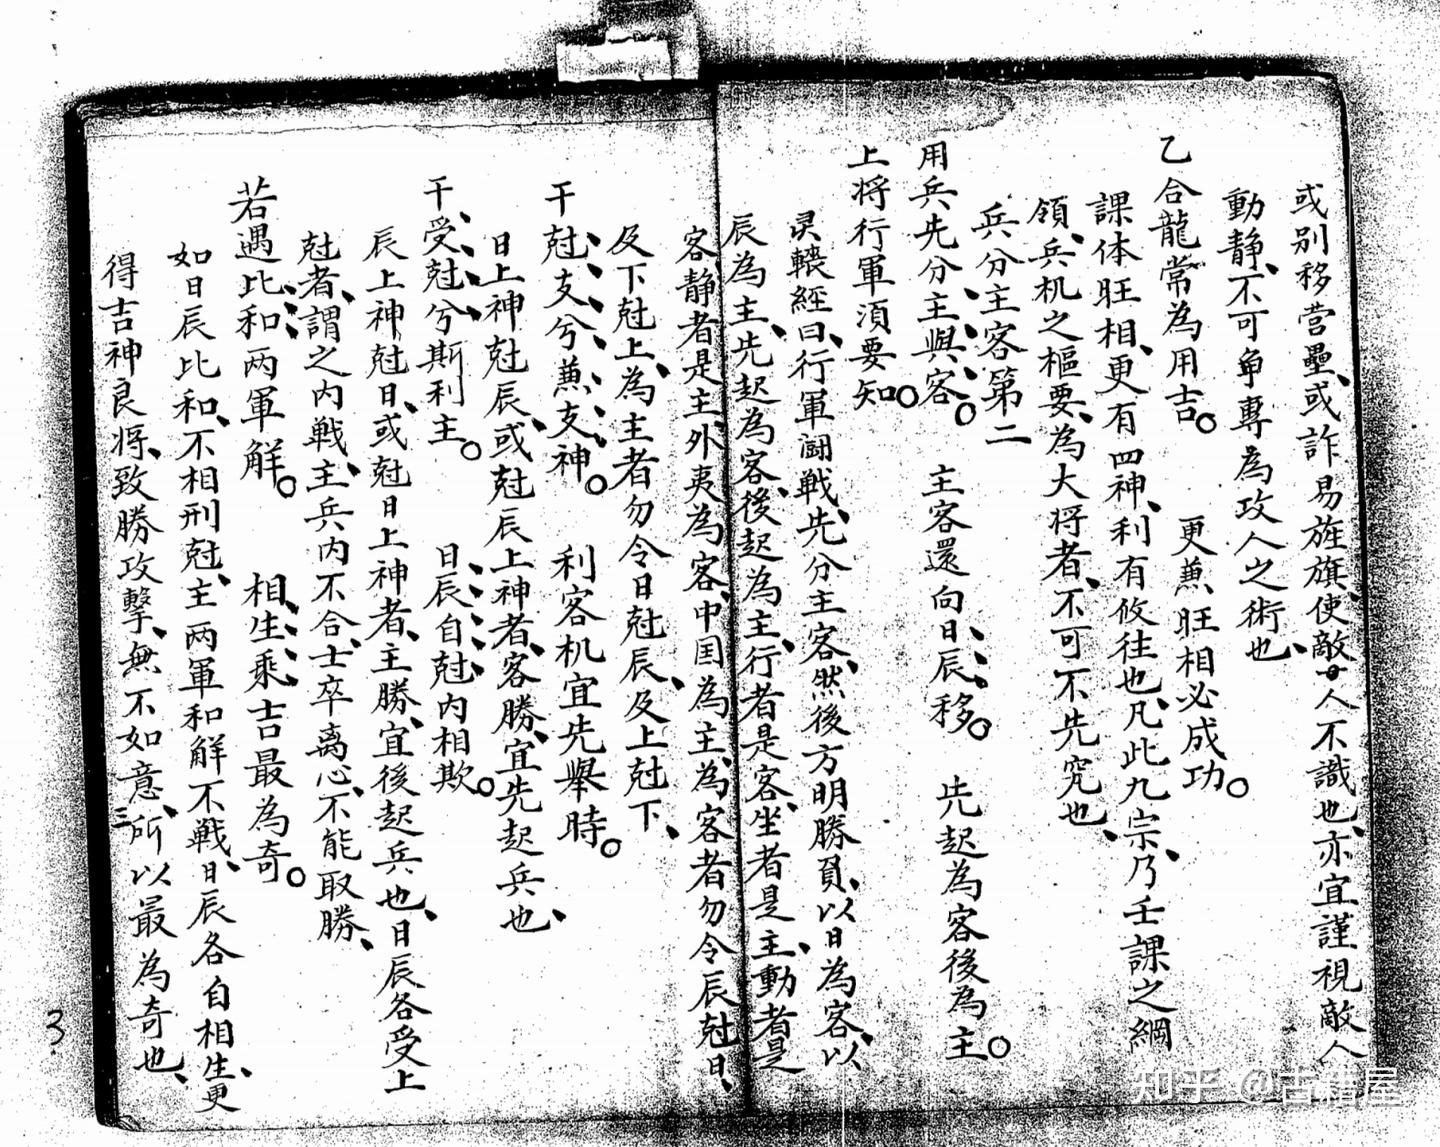 或别移营壘、或詐易旌旗、使敵人不識也、亦宜謹視敵人
動静、不可爭專為攻人之術也、
乙合龍常為用吉。 更兼旺相必成功。
課体旺相、更有四神、利有攸往也、凡此九宗、乃壬課之綱
領、兵机之樞要、為大将者、不可不先究也、
兵分主客第二
用兵先分主與客。 主客還向日辰移。 先起為客後為主。
上将行軍須要知。
灵轅經曰、行軍闘戦、先分主客、然後方明勝負、以日為客、以
辰為主、先起為客、後起為主、行者是客、坐者是主、動者是
客、静者是主、外夷為客、中国為主、為客者勿令辰尅日、
及下尅上、為主者勿令日尅辰、及上尅下、
干尅支兮兼支神。 利客机宜先舉時。
日上神尅辰、或尅辰上神者、客勝、宜先起兵也、
干受尅兮斯利主。 日辰自尅内相欺。
辰上神尅日、或尅日上神者、主勝、宜後起兵也、日辰各受上
尅者、謂之内戦、主兵内不合、士卒离心、不能取勝、
若遇比和两軍解。 相生乘吉最為奇。
如日辰比和、不相刑尅、主两軍和解不戦、日辰各自相生、更
得吉神良将、致勝攻擊、無不如意、所以最為奇也、
三
3
知乎 @古籍屋